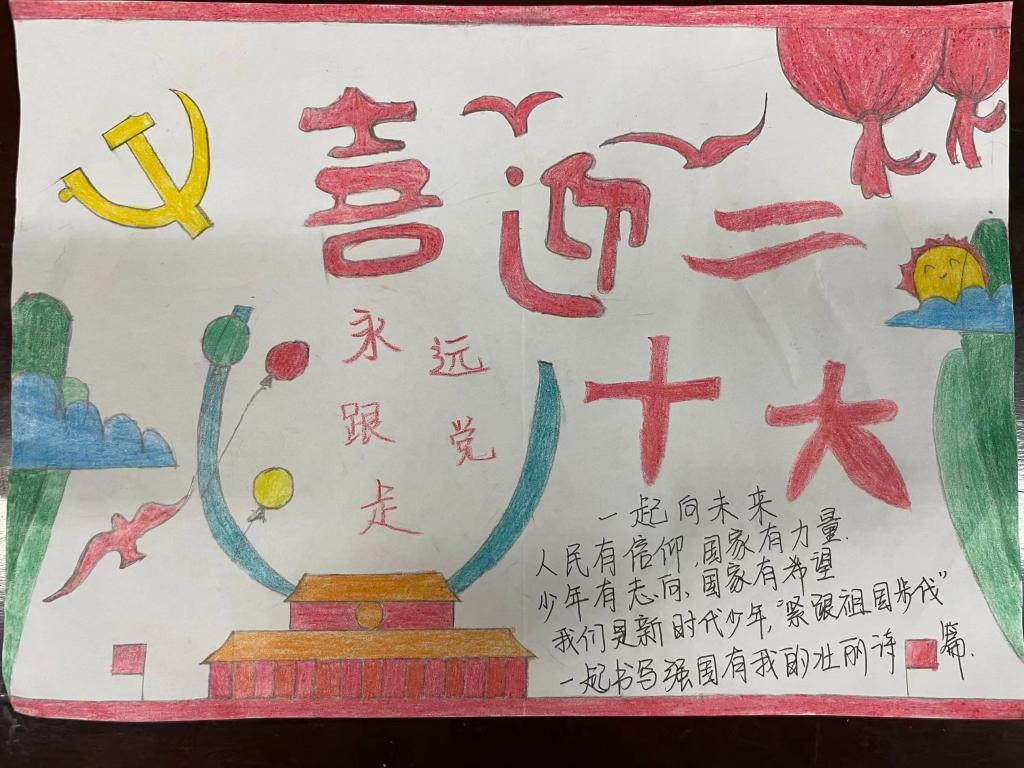 喜迎二
十大
永远
跟党
走
一起向未来
人民有信仰,国家有力量.
少年有志向、国家有希望
我们是新时代少年,“紧跟祖国步伐”
一起书写强国有我的壮丽诗篇.